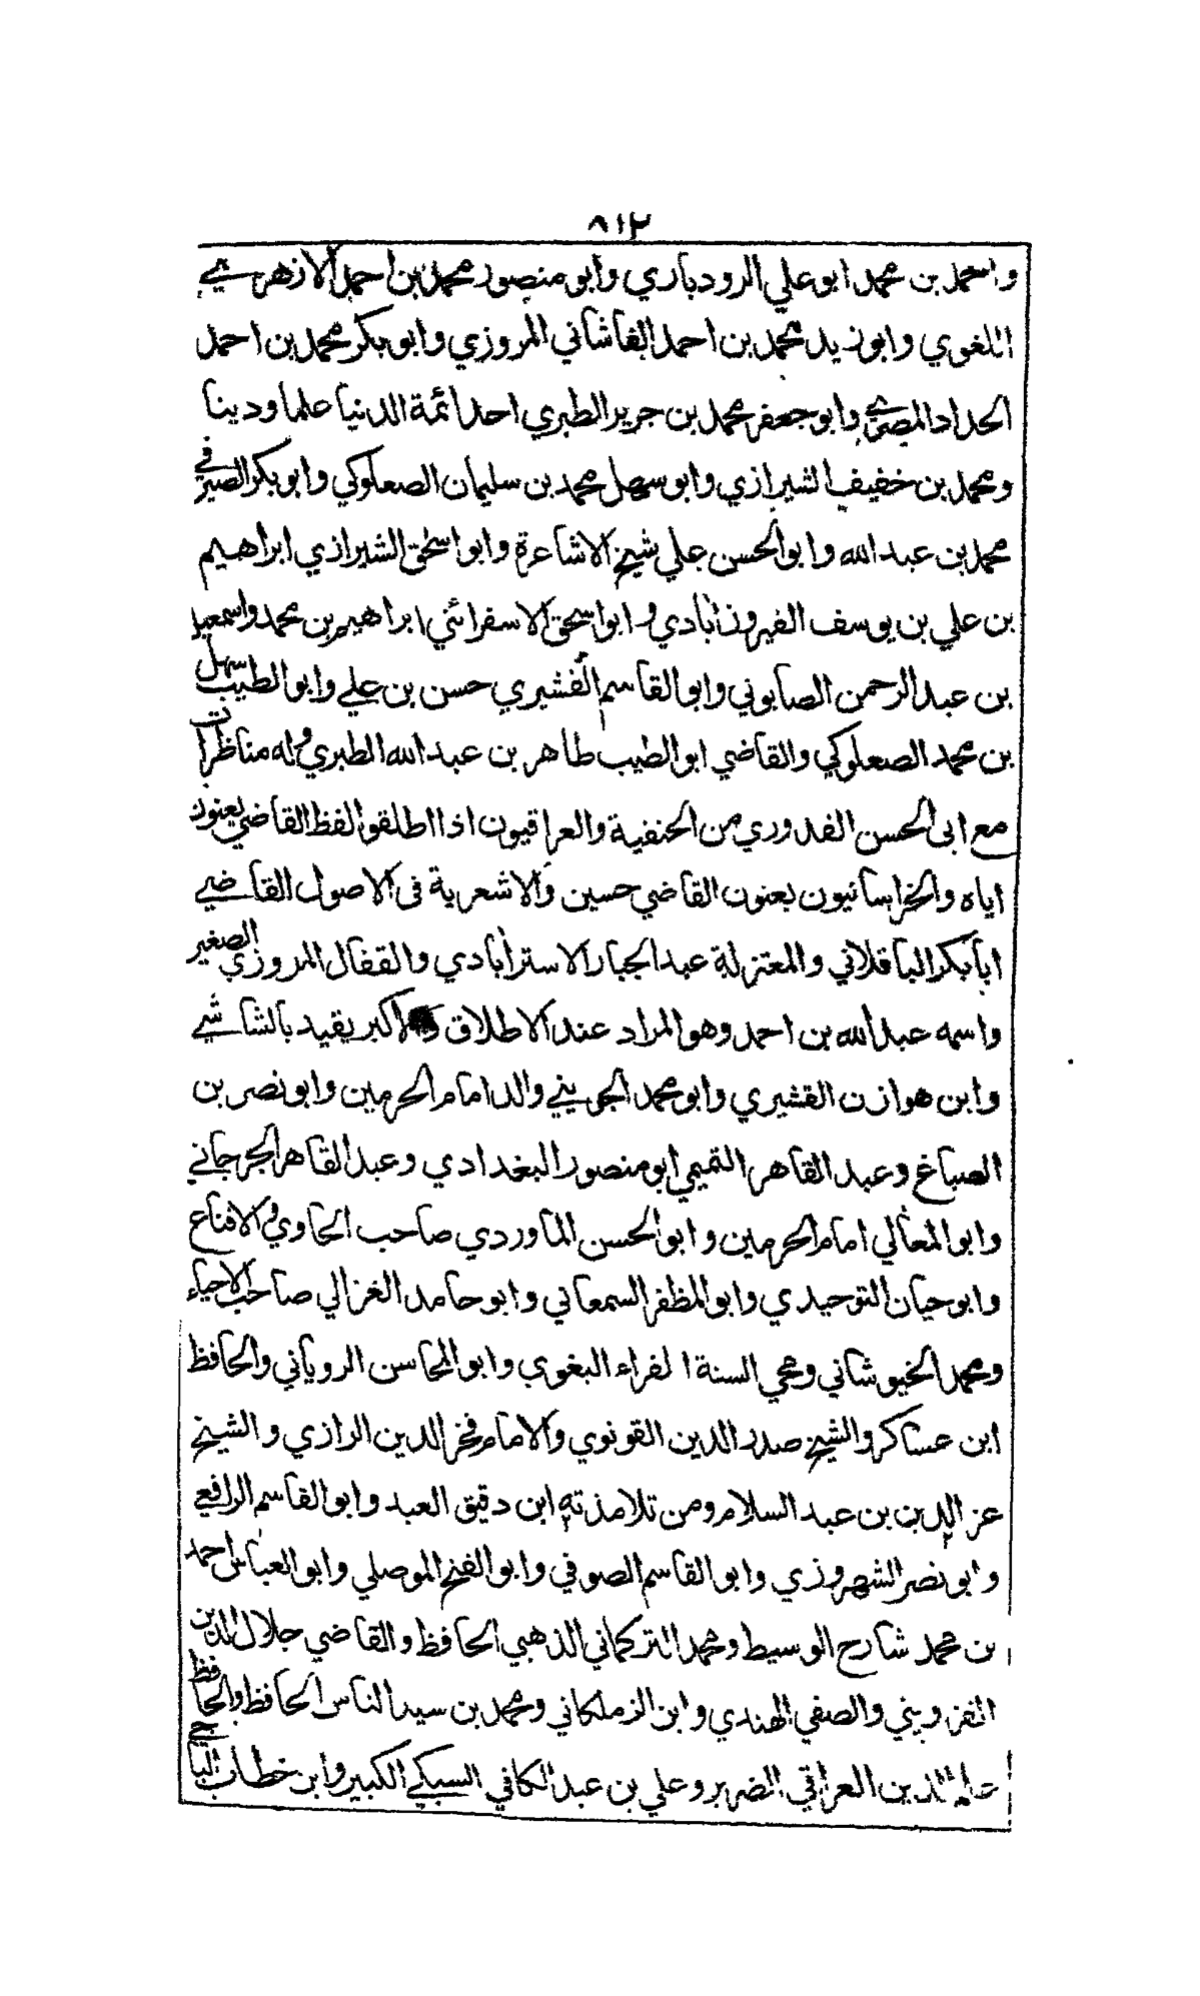 ٨١٢
واحمد بن محمد ابو علي الرودباري وابو منصور محمد بن احمد الازهري
اللغوي وابو زيد محمد بن احمد الفاشاني المروزي وابو بكر محمد بن احمد
الحداد المصري وابو جعفر محمد بن جرير الطبري احد ائمة الدنيا علما ودينا
ومحمد بن خفيف الشيرازي وابو سهل محمد بن سليمان الصعلوكي وابو بكر الصيرفي
محمد بن عبد الله وابو الحسن علي شيخ الاشاعرة وابو اسحق الشيرازي ابراهيم
بن علي بن يوسف الفيروزابادي وابو اسحق الاسفرائني ابراهيم بن محمد واسمعيل
بن عبد الرحمن الصابوني وابو القاسم القشيري حسن بن علي وابو الطيب سهل
بن محمد الصعلوكي والقاضي ابو الطيب طاهر بن عبد الله الطبري وله مناظرات
مع ابى الحسن القدوري من الحنفية والعراقيون اذا اطلقوا لفظ القاضي يعنون
اياه والخراسانيون يعنون القاضي حسين والاشعرية فى الاصول القاضي
ابا بكر الباقلاني والمعتزلة عبد الجبار الاسترابادي والقفال المروزي الصغير
واسمه عبد الله بن احمد وهو المراد عند الاطلاق والاكبر يقيد بالشاشي
وابن هوازن القشيري وابو محمد الجويني والد امام الحرمين وابو نصر بن
الصباغ وعبد القاهر التميمي ابو منصور البغدادي وعبد القاهر الجرجاني
وابو المعالي امام الحرمين وابو الحسن الماوردي صاحب الحاوي والاقناع
وابو حيان التوحيدي وابو المظفر السمعاني وابو حامد الغزالي صاحب الاحياء
ومحمد الخبوشاني ومحي السنة الفراء البغوي وابو المحاسن الروياني والحافظ
ابن عساكر والشيخ صدر الدين القونوي والامام فخر الدين الرازي والشيخ
عز الدين بن عبد السلام ومن تلامذته ابن دقيق العيد وابو القاسم الرافعي
وابو نصر الشهروزي وابو القاسم الصوفي وابو الفتح الموصلي وابو العباس احمد
بن محمد شارح الوسيط ومحمد التركماني الذهبي الحافظ والقاضي جلال الدين
القزويني والصفي الهندي وابن الزملكاني ومحمد بن سيد الناس الحافظ والحافظ
علم الدين العراقي الضرير وعلي بن عبد الكافي السبكي الكبير وابن خطاب الباجي